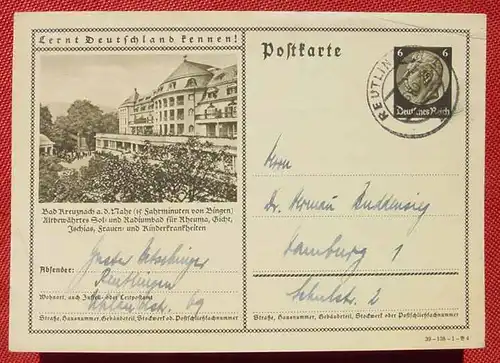 Lernt Deutschland kennen!
Postkarte
6 6
Deutsches Reich
REUTLIN
Bad Kreuznach a. d. Nahe (15 Fahrminuten von Bingen)
Altbewährtes Sol- und Radiumbad für Rheuma, Gicht,
Ischias, Frauen- und Kinderkrankheiten
Absender:
Reutlingen
Wohnort, auch Zustell- oder Leitpostamt
69
Straße, Hausnummer, Gebäudeteil, Stockwerk od. Postschließfachnummer
Herrn
Dr.
Hamburg 1
Schulstr. 2
Straße, Hausnummer, Gebäudeteil, Stockwerk oder Postschließfachnummer